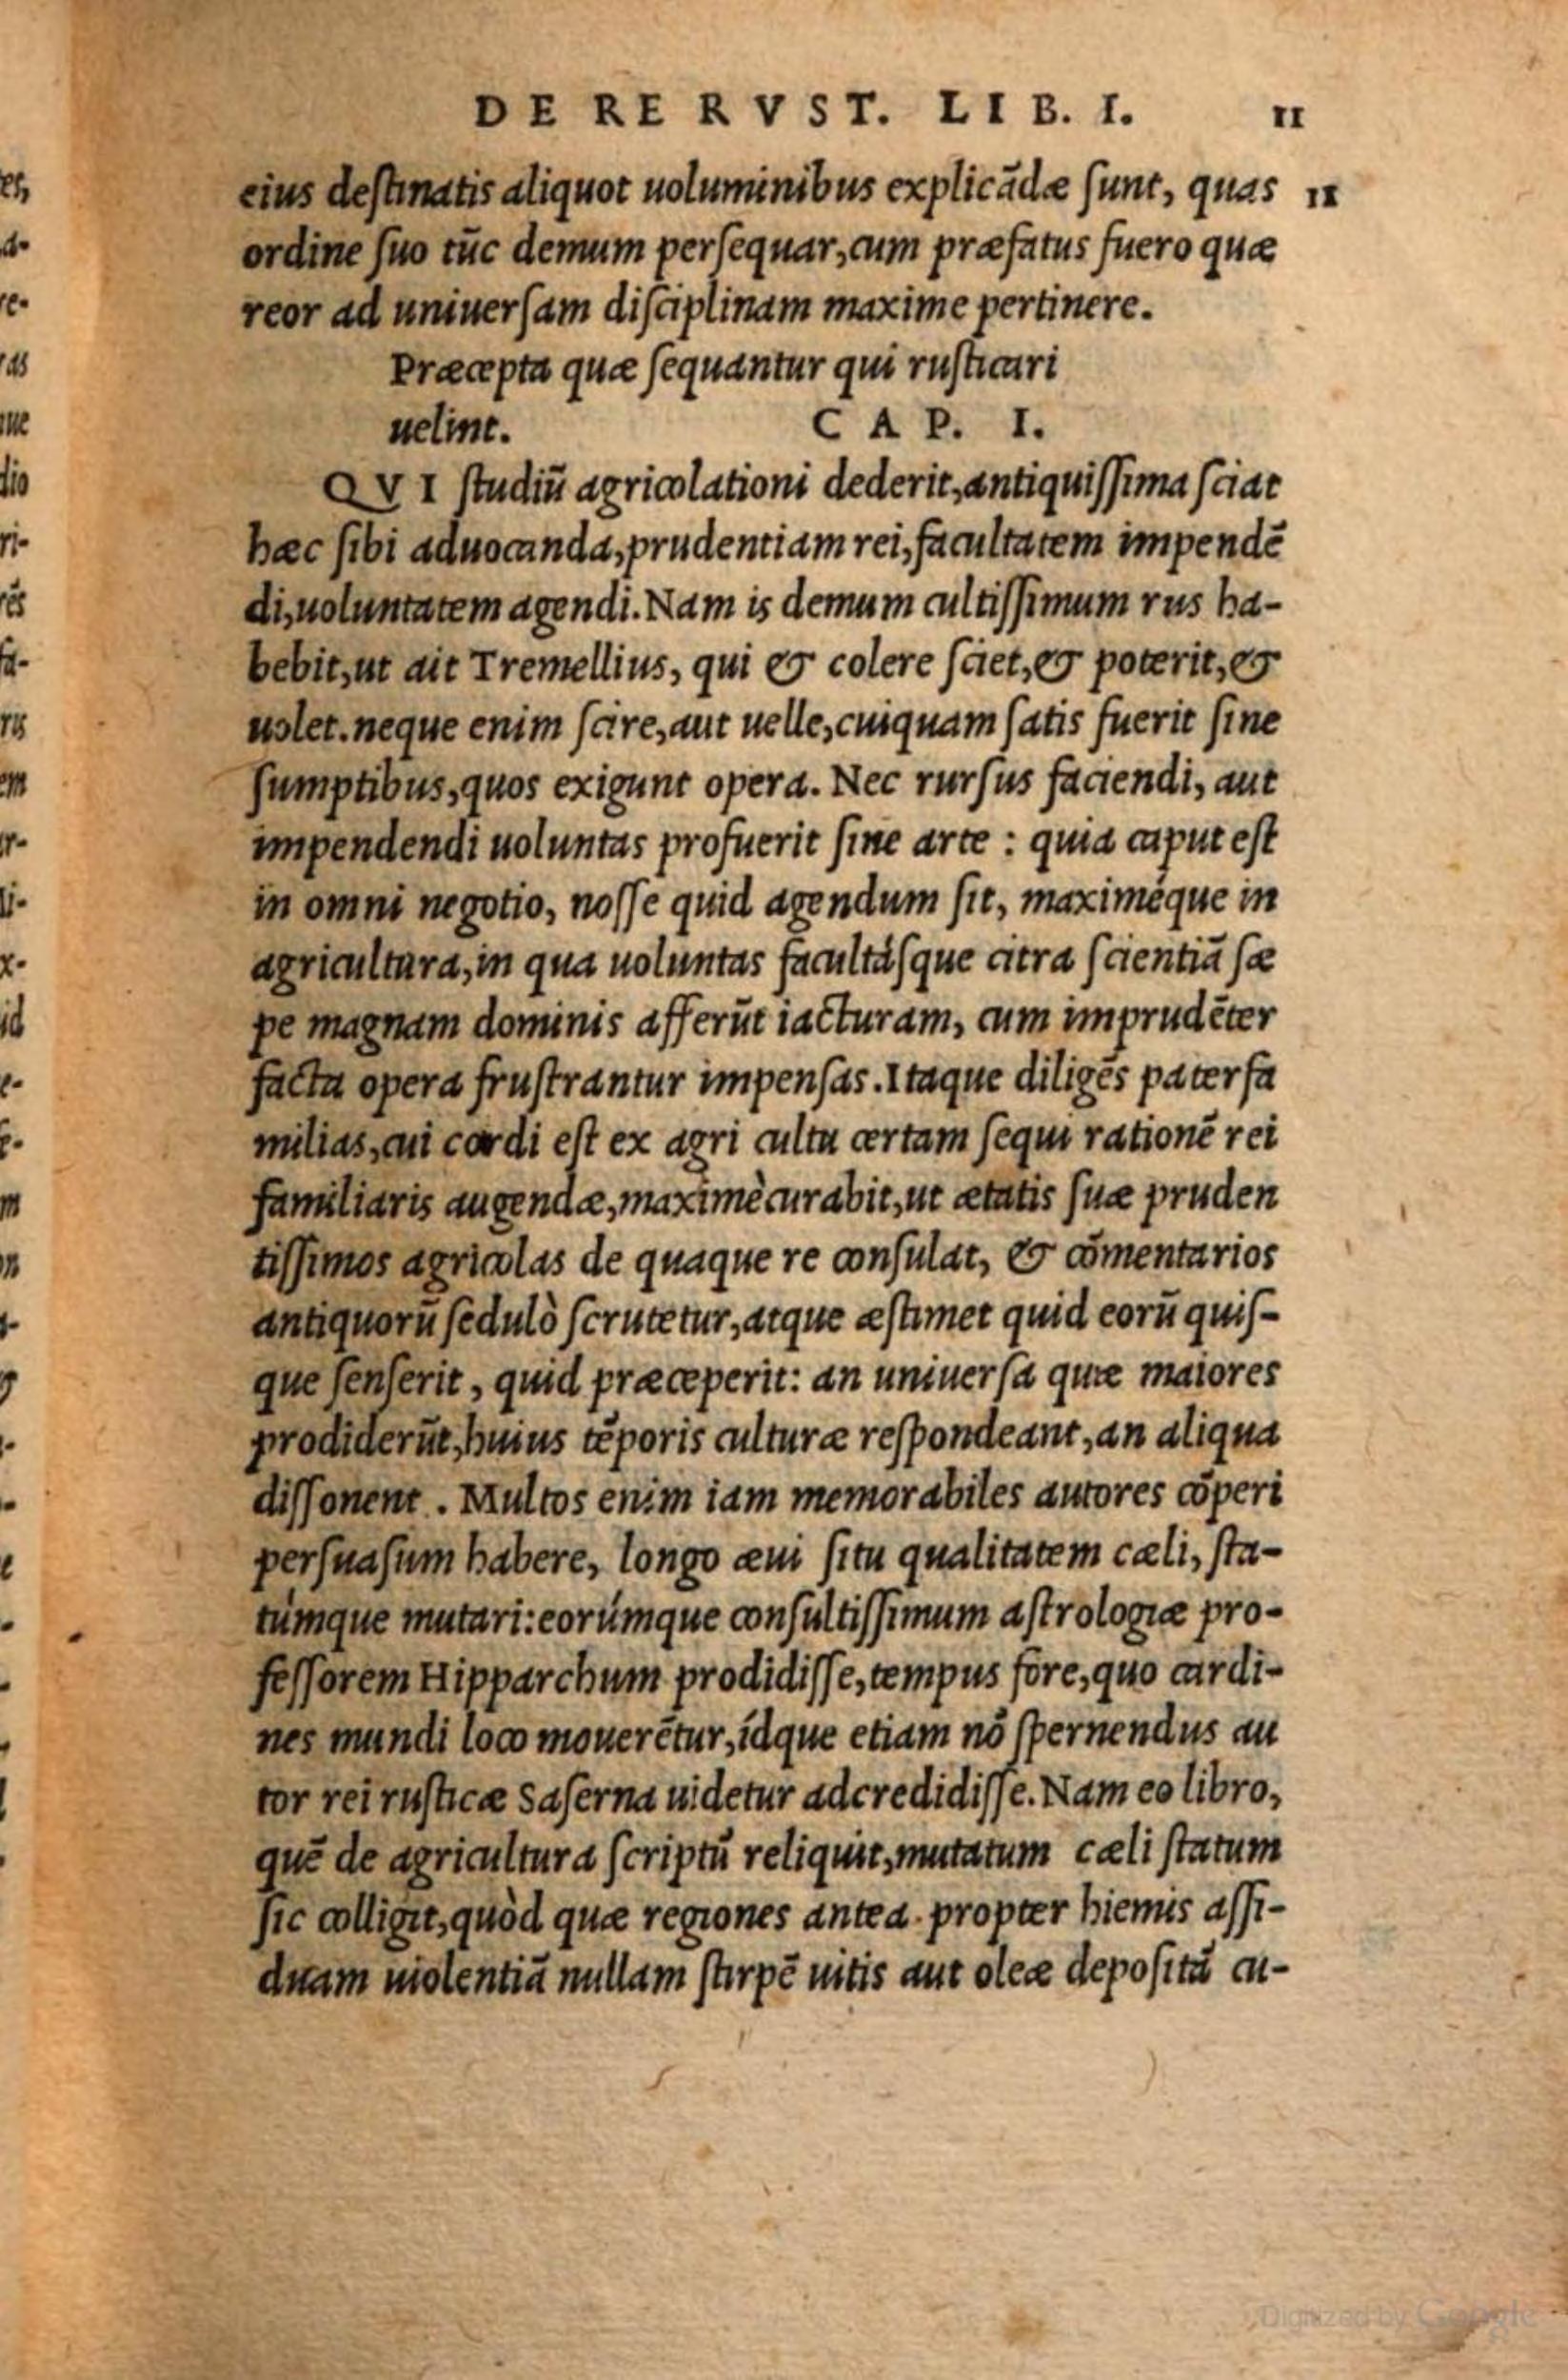 DE RE RVST. LIB. I. 11
eius deſtinatis aliquot uoluminibus explicãdæ ſunt, quas 11
ordine ſuo tũc demum perſequar,cum præfatus fuero quæ
reor ad uniuerſam diſciplinam maxime pertinere.
Præcepta quæ ſequantur qui ruſticari
uelint. CAP. I.
QVI ſtudiũ agricolationi dederit,antiquiſſima ſciat
hæc ſibi aduocanda,prudentiam rei,facultatem impendẽ
di,uoluntatem agendi.Nam is demum cultiſſimum rus ha-
bebit,ut ait Tremellius, qui & colere ſciet,& poterit,&
uolet.neque enim ſcire,aut uelle,cuiquam ſatis fuerit ſine
ſumptibus,quos exigunt opera. Nec rurſus faciendi, aut
impendendi uoluntas profuerit ſine arte : quia caput eſt
in omni negotio, noſſe quid agendum ſit, maximéque in
agricultura,in qua uoluntas facultáſque citra ſcientiã ſæ
pe magnam dominis afferũt iacturam, cum imprudẽter
facta opera fruſtrantur impenſas.Itaque diligẽs paterfa
milias,cui cordi eſt ex agri cultu certam ſequi rationẽ rei
familiaris augendæ,maximè curabit,ut ætatis ſuæ pruden
tiſſimos agricolas de quaque re conſulat, & cõmentarios
antiquorũ ſedulò ſcrutetur,atque æſtimet quid eorũ quiſ-
que ſenſerit, quid præceperit: an uniuerſa quæ maiores
prodiderũt,huius tẽporis culturæ reſpondeant,an aliqua
diſſonent. Multos enim iam memorabiles autores cõperi
perſuaſum habere, longo æui ſitu qualitatem cæli, ſta-
túmque mutari:eorúmque conſultiſſimum aſtrologiæ pro-
feſſorem Hipparchum prodidiſſe,tempus fore,quo cardi-
nes mundi loco mouerẽtur,ídque etiam nõ ſpernendus au
tor rei ruſticæ Saſerna uidetur adcredidiſſe.Nam eo libro,
quẽ de agricultura ſcriptũ reliquit,mutatum cæli ſtatum
ſic colligit,quòd quæ regiones antea propter hiemis aſſi-
duam uiolentiã nullam ſtirpẽ uitis aut oleæ depoſitã cu-
Digitized by Google